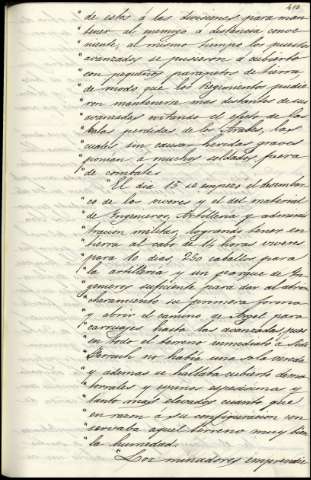 410
"de estos á las divisiones para man
"tener al enemigo á distancia conve
"niente; al mismo tiempo los puestos
"avanzados se pusieron á cubierto
"con pequeños parapetos de tierra
"de modo que los Regimientos pudie
"ron mantenerse mas distantes de sus
"avanzadas evitando el efecto de las
"balas perdidas de los Arabes, las
"cuales sin causar heridas graves
"ponian á muchos soldados fuera
"de combate.
"El dia 15 se empezó el desembar
"co de los viveres y el del material
"de Ingenieros, Artilleria y adminis
"tracion militar, logrando tener en
"tierra al cabo de 14 horas viveres
"para 10 dias, 250 caballos para
"la artilleria y un parque de In
"genieros suficiente para dar al atrin
"cheramiento su primera forma
"y abrir el camino de Argel para
"carruajes hasta las avanzadas, pues
"en todo el terreno inmediato á Sidi
"Ferruch no habia una sola vereda
"y ademas se hallaba cubierto de ma
"torrales y espinos espesisimos y
"tanto mas elevados cuanto que
"en razon á su configuracion con
"servaba aquel terreno muy bien
"la humedad.
"Los minadores emprendie